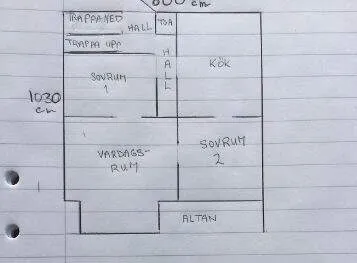 800 cm
TRAPPA NED
HALL
TOA
TRAPPA UPP
HALL
KÖK
SOVRUM
1
1030
cm
VARDAGS-
RUM
SOVRUM
2
ALTAN